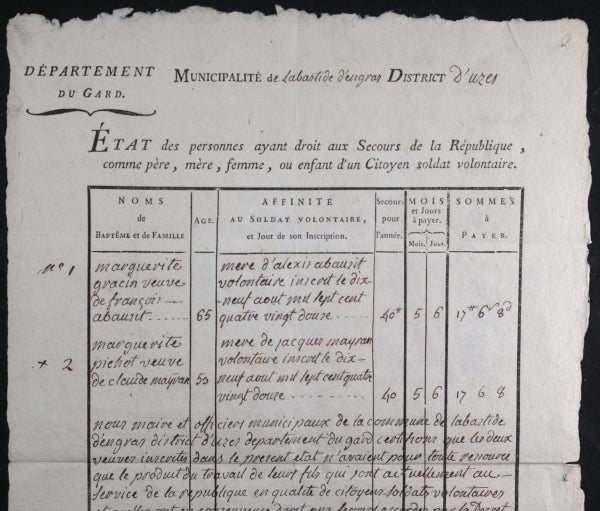 DÉPARTEMENT
DU GARD.
MUNICIPALITÉ de labastide d'engras DISTRICT D'uzes
ÉTAT des personnes ayant droit aux Secours de la République,
comme père, mère, femme, ou enfant d'un Citoyen soldat volontaire.
NOMS
de
BAPTÊME et de FAMILLE
AGE.
AFFINITÉ
AU SOLDAT VOLONTAIRE,
et Jour de son Inscription.
Secours
pour
l'année.
MOIS
et Jours
à payer.
Mois. Jour.
SOMMES
à
PAYER.
n° 1
marguerite
gracin veuve
de françois
abauzit ..... 65
mere d'alexis abauzit
volontaire inscrit le dix-
neuf aout mil sept cent
quatre vingt douze ..... 40# 5 6 17# 6s 8d
+ 2
marguerite
pichot veuve
de claude mayran 50
mere de jacques mayran
volontaire inscrit le dix-
neuf aout mil sept cent quatre
vingt douze ..... 40 5 6 17 6 8
nous maire et officiers municipaux de la commune de labastide
dengras district d'uzes departement du gard certifions que les deux
veuves inscrites dans le present etat n'avaient pour toute ressource
que le produit du travail de leurs fils qui sont actuellement au
service de la republique en qualité de citoyens soldats volontaires